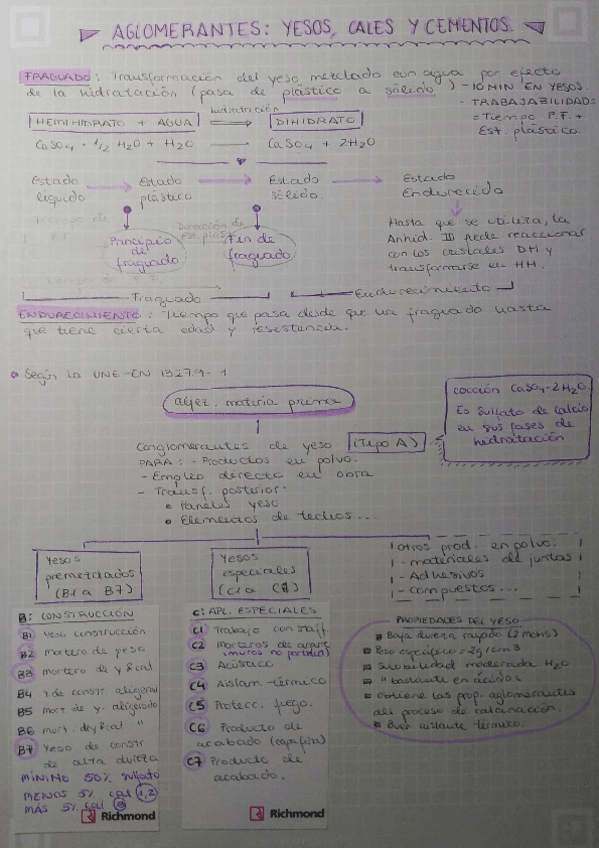 AGLOMERANTES: YESOS, CALES Y CEMENTOS.
FRAGUADO: Transformación del yeso mezclado con agua por efecto
de la hidratación (pasa de plástico a sólido)
-10 MIN EN YESOS.
- TRABAJABILIDAD=
=Tiempo P.F. +
Est. plástico.
hidratación
HEMIHIDRATO + AGUA ⟹ DIHIDRATO
CaSO4 · 1/2 H2O + H2O → CaSO4 + 2H2O
Estado líquido → Estado plástico → Estado sólido. → Estado Endurecido
Principio de fraguado
Fin de fraguado
Hasta que se utiliza, la
Anhid. III puede reaccionar
con los cristales DH y
transformarse en HH.
Fraguado
Endurecimiento
ENDURECIMIENTO: Tiempo que pasa desde que ha fraguado hasta
que tiene cierta edad y resistencia.
Según la UNE-EN 13279-1
algez. materia prima
cocción CaSO4·2H2O.
Es sulfato de calcio
en sus fases de
hidratación
Conglomerantes de yeso (Tipo A)
PARA: - Productos en polvo.
- Empleo directo en obra
- Transf. posterior:
Paneles yeso
Elementos de techos...
Yesos
premezclados
(B1 a B7)
Yesos
especiales
(C1 a C7)
otros prod. en polvo:
- materiales de juntas
- Adhesivos
- compuestos...
B: CONSTRUCCIÓN
B1 Yeso construcción
B2 mortero de yeso
B3 mortero de y y cal
B4 Y. de constr. aligerado
B5 mort. de y. aligerado
B6 mort. de y y cal "
B7 Yeso de constr
de alta dureza
MÍNIMO 50% sulfato
MENOS 5% cal 1,2
MÁS 5% cal 3
Richmond
C: APL. ESPECIALES
C1 Trabajo con staff.
C2 Morteros de agarre
(muros no portantes)
C3 Acústico
C4 Aislam. térmico
C5 Protecc. fuego.
C6 Producto de
acabado (capa fina)
C7 Producto de
acabado.
Richmond
PROPIEDADES DEL YESO
Baja dureza rayado (2 mohs)
Peso específico ~2g/cm3
Solubilidad moderada H2O
" bastante en ácidos
Obtiene las prop. aglomerantes
del proceso de calcinación.
Buen aislante térmico.